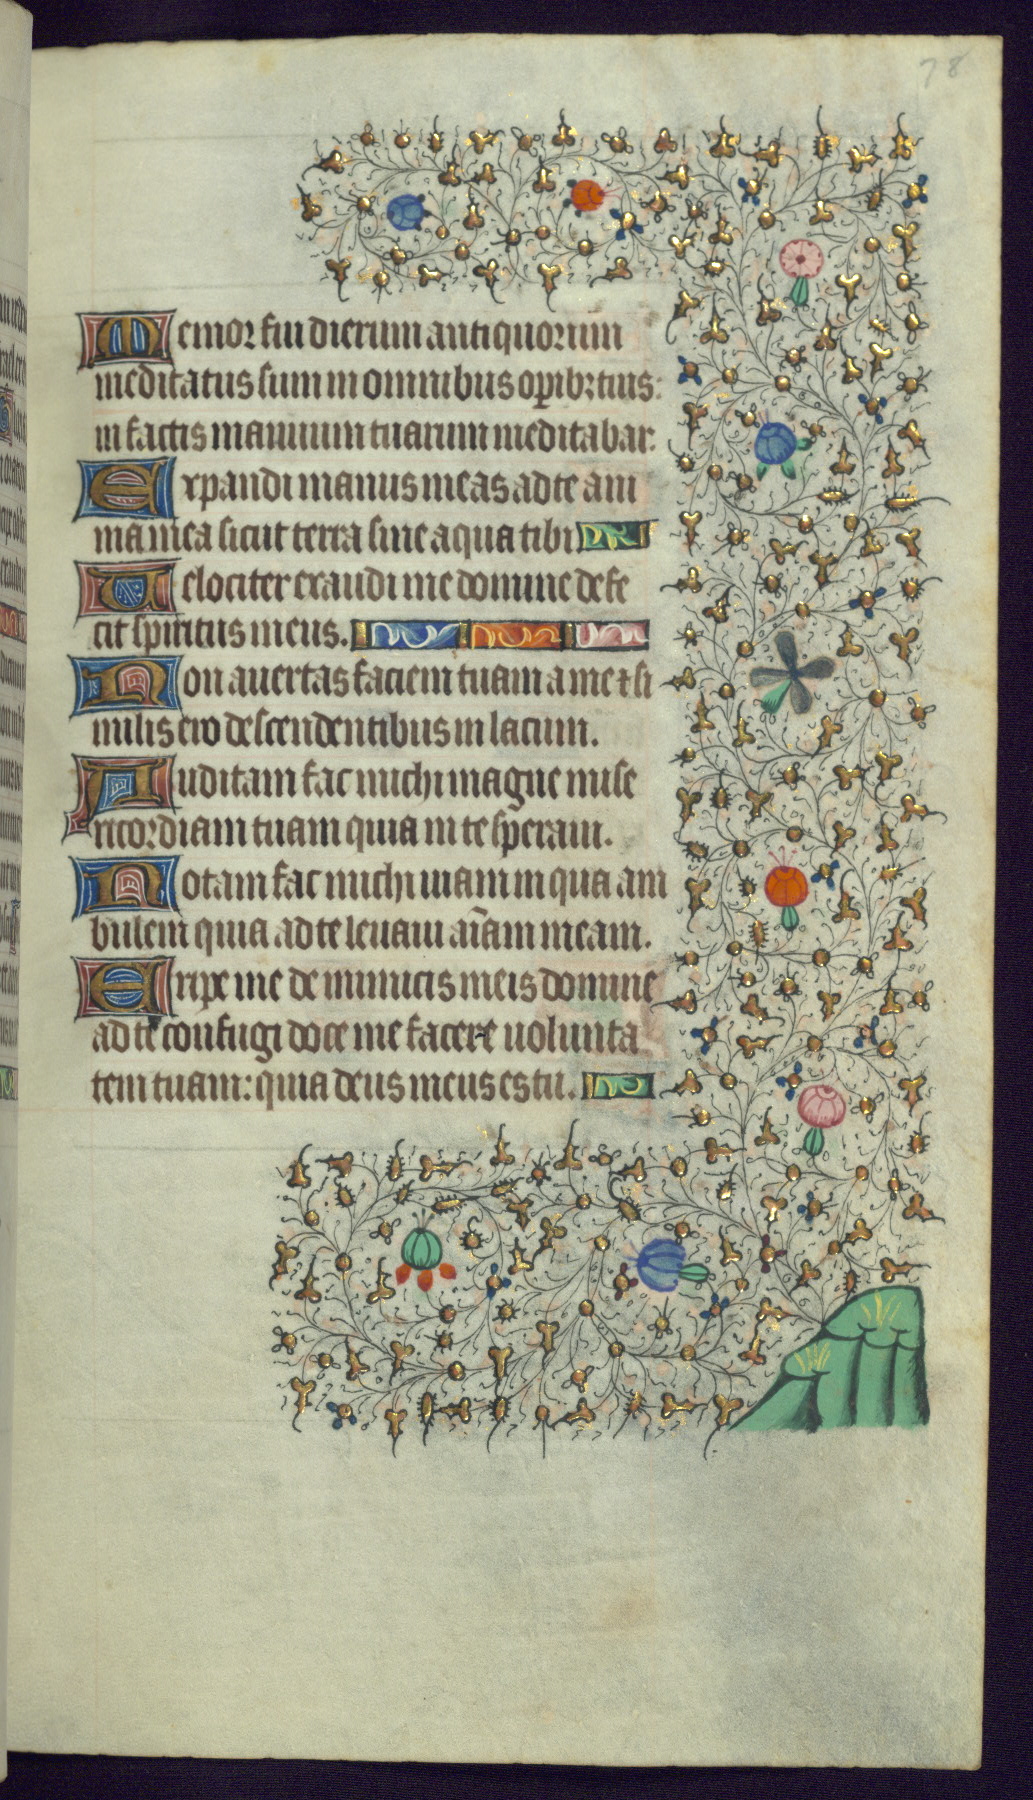 78
Memor fui dierum antiquorum
meditatus sum in omnibus op̲ibꝫ tuis:
in factis manuum tuarum meditabar.
Expandi manus meas ad te ani
ma mea sicut terra sine aqua tibi
Uelociter exaudi me domine defe
cit spiritus meus.
Non auertas faciem tuam a me ⁊ si
milis ero descendentibus in lacum.
Auditam fac michi magne mise
ricordiam tuam quia in te speraui.
Notam fac michi uiam in qua am
bulem quia ad te leuaui aīam meam.
Eripe me de inimicis meis domine
ad te confugi doce me facere uolunta
tem tuam: quia deus meus es tu.